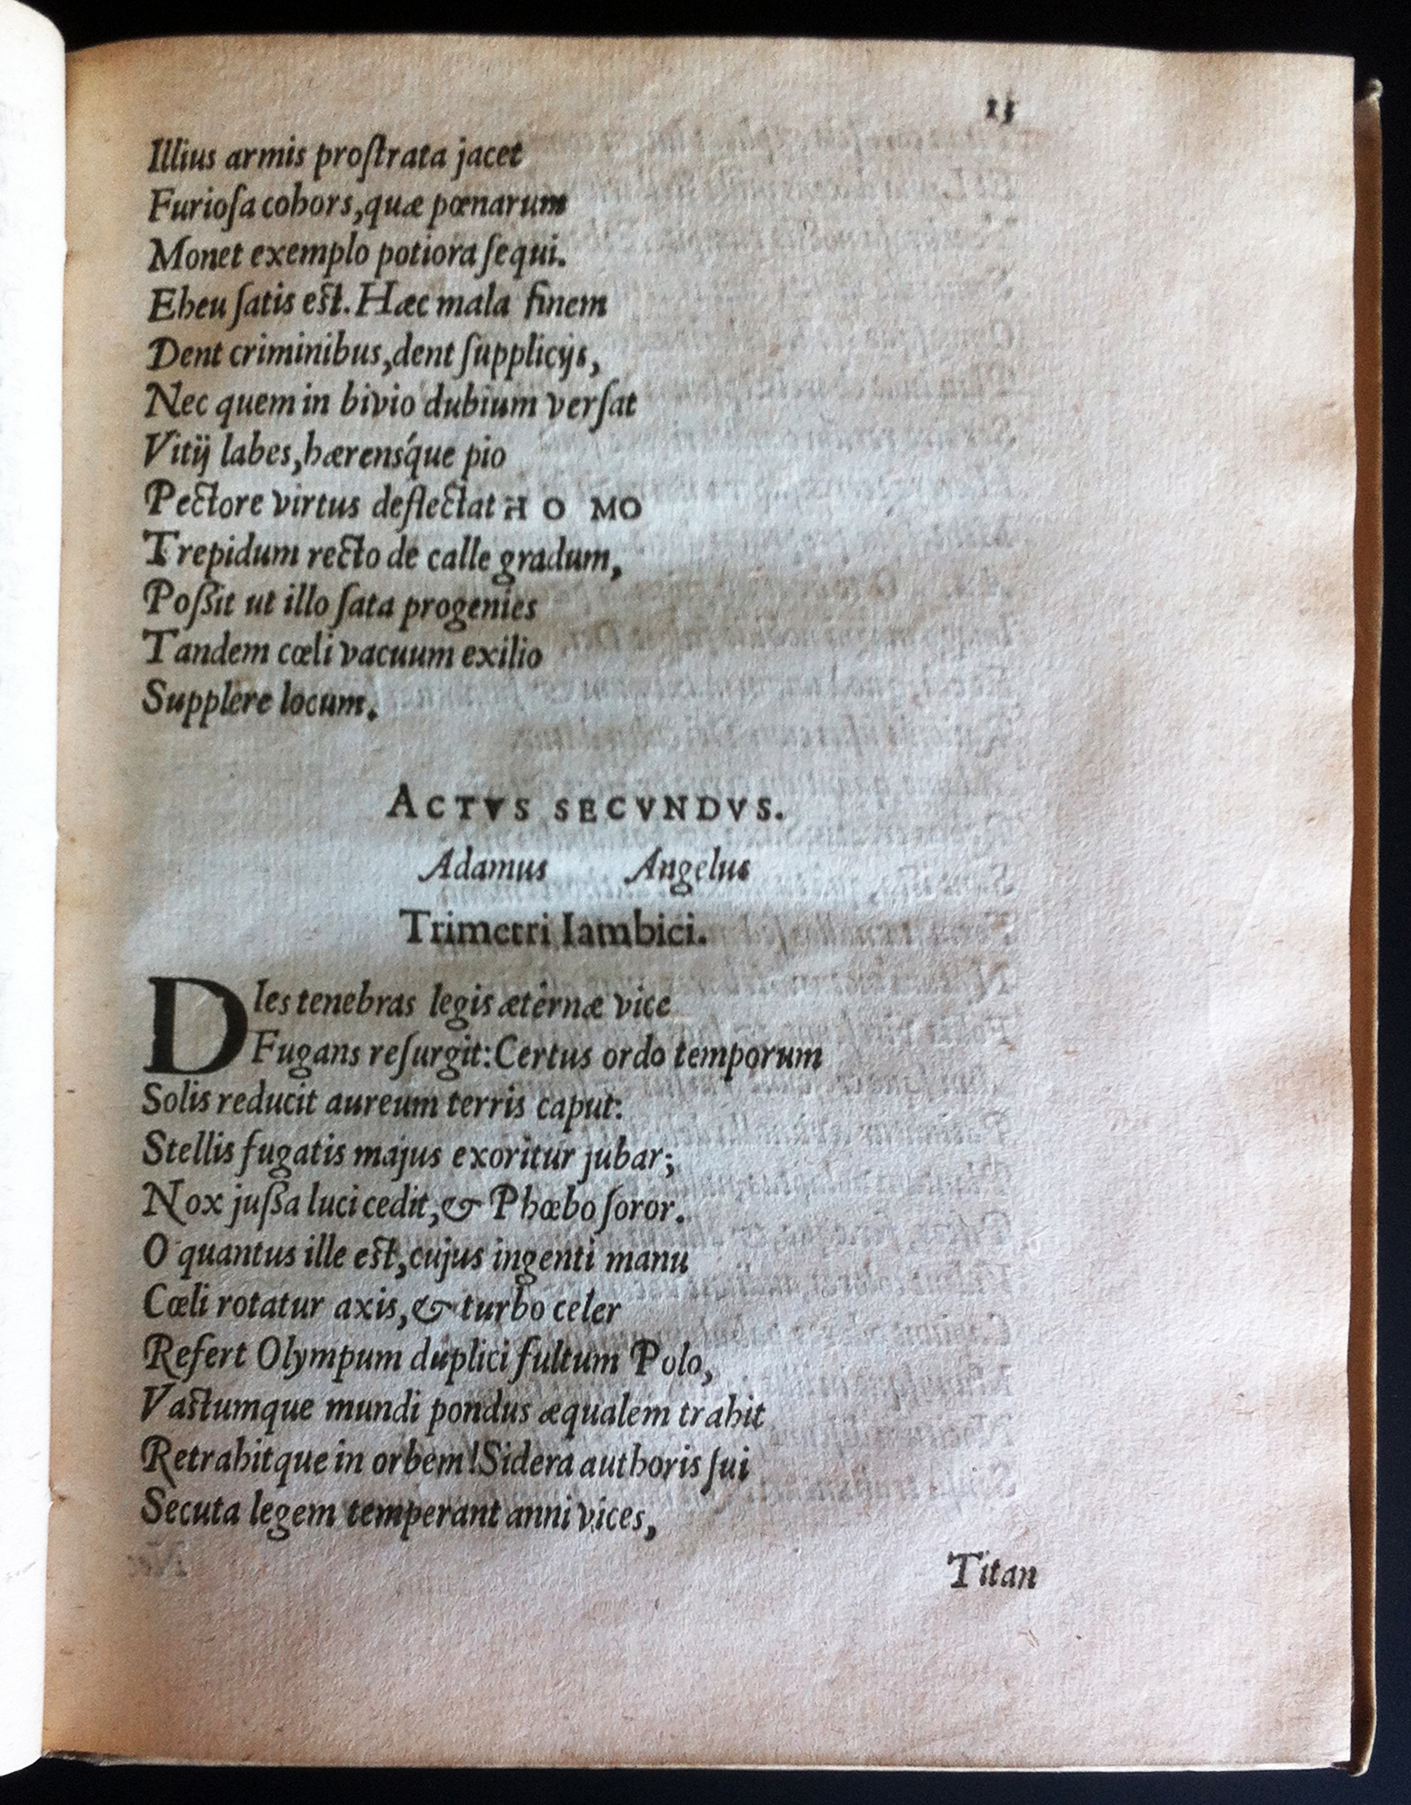 13
Illius armis proſtrata jacet
Furioſa cohors, quæ pœnarum
Monet exemplo potiora ſequi.
Eheu ſatis eſt. Hæc mala finem
Dent criminibus, dent ſupplicijs,
Nec quem in bivio dubium verſat
Vitij labes, hærensq́ue pio
Pectore virtus deflectat HOMO
Trepidum recto de calle gradum,
Poſſit ut illo ſata progenies
Tandem cœli vacuum exilio
Supplere locum.
ACTVS SECVNDVS.
Adamus Angelus
Trimetri Iambici.
DIes tenebras legis æternæ vice
Fugans reſurgit: Certus ordo temporum
Solis reducit aureum terris caput:
Stellis fugatis majus exoritur jubar;
Nox juſſa luci cedit, & Phœbo ſoror.
O quantus ille eſt, cujus ingenti manu
Cœli rotatur axis, & turbo celer
Refert Olympum duplici fultum Polo,
Vaſtumque mundi pondus æqualem trahit
Retrahitque in orbem! Sidera authoris ſui
Secuta legem temperant anni vices,
Titan